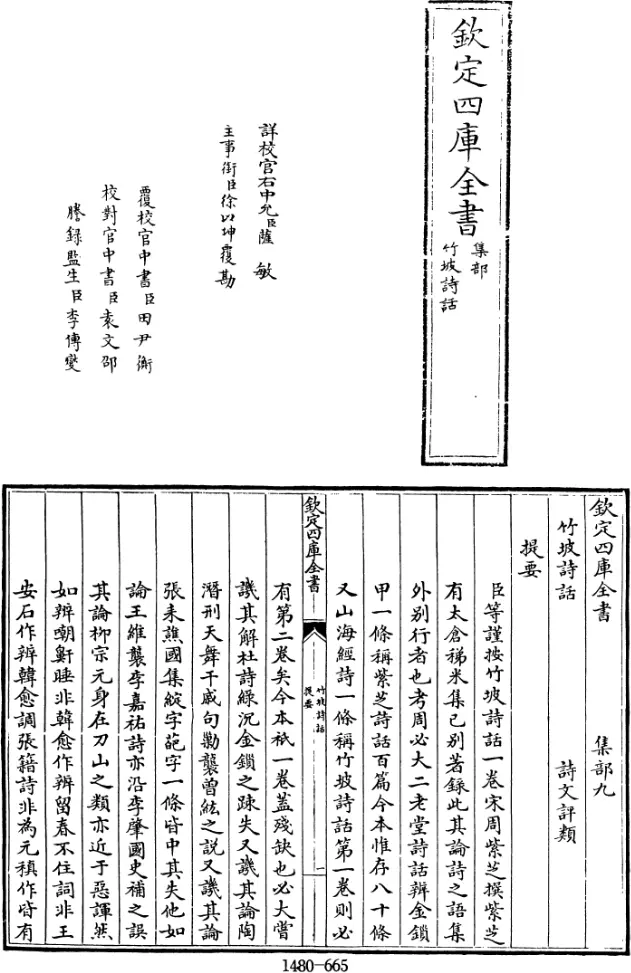 欽定四庫全書
集部
竹坡詩話
詳校官右中允臣薩敏
主事銜臣徐以坤覆勘
覆校官中書臣田尹衡
校對官中書臣袁文邵
謄録監生臣李傳燮
欽定四庫全書 集部九
竹坡詩話 詩文評類
提要
臣等謹按竹坡詩話一卷宋周紫芝撰紫芝
有太倉稊米集已别著録此其論詩之語集
外别行者也考周必大二老堂詩話辨金鎖
甲一條稱紫芝詩話百篇今本惟存八十條
又山海經詩一條稱竹坡詩話第一卷則必
欽定四庫全書
竹坡詩話
提要
一
有第二卷矣今本祇一卷蓋殘缺也必大嘗
譏其解杜詩緑沉金鎖之疎失又譏其論陶
潛刑天舞干戚句勦襲曾紘之説又譏其論
張耒譙國集綻字葩字一條皆中其失他如
論王維襲李嘉祐詩亦沿李肇國史補之誤
其論柳宗元身在刀山之類亦近于惡諢然
如辨嘲鼾睡非韓愈作辨留春不住詞非王
安石作辨韓愈調張籍詩非為元稹作皆有
1480-665